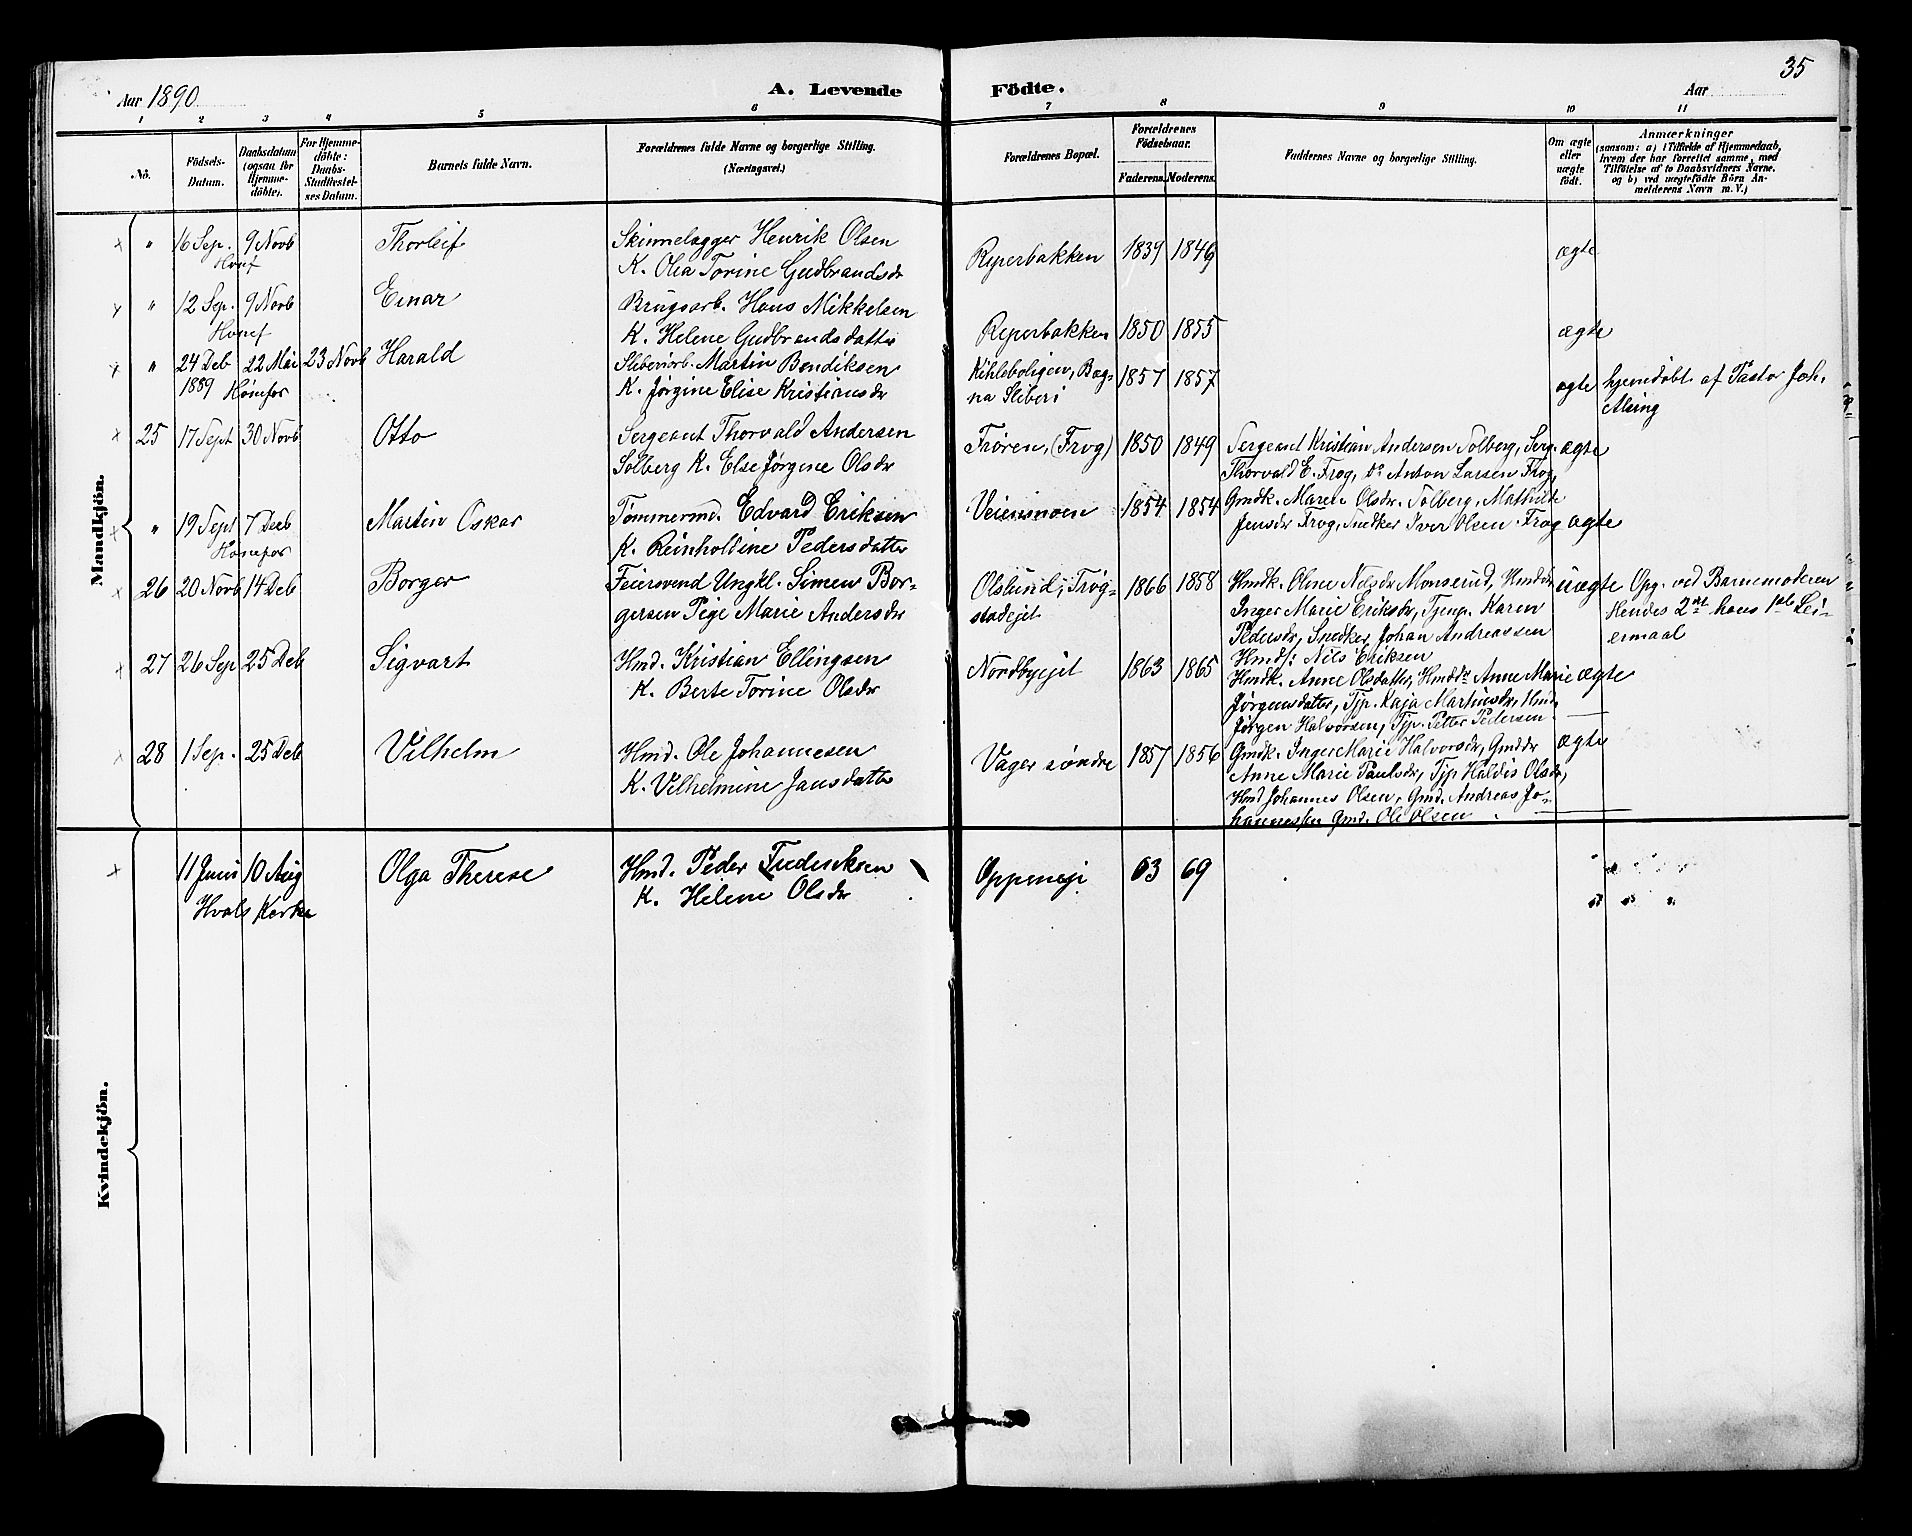 35
Aar 1890. A. Levende Födte. Aar
1 2 3 4 5 6 7 8 9 10 11
No. Födsels-Datum. Daabsdatum (ogsaa for Hjemmedöbte). For Hjemmedöbte: Daabs-Stadfæstelses Datum. Barnets fulde Navn. Forældrenes fulde Navne og borgerlige Stilling. (Næringsvei.) Forældrenes Bopæl. Forældrenes Födselsaar. Faderens. Moderens. Faddernes Navne og borgerlige Stilling. Om ægte eller uægte födt. Anmærkninger (saasom: a) i Tilfælde af Hjemmedaab, hvem der har forrettet samme, med Tilföielse af to Daabsvidners Navne, og b) ved uægtefödte Börn Anmelderens Navn m. V.)
Mandkjön.
" 16 Sep. 9 Novb Thorleif Skinnelægger Henrik Olsen
Hønef K. Olea Torine Gudbrandsdr Reperbakken 1839 1849 ægte
" 12 Sep. 9 Novb Einar Brugsarb. Hans Mikkelsen
Hønef K. Helene Gudbrandsdatter Reperbakken 1850 1855 ægte
" 24 Deb 22 Mai 23 Novb Harald Sliberiarb. Martin Bendiksen Kihleboligen, Bæg-
1889 Hønefos K. Jørgine Elise Kristiansdr na Sliberi 1857 1857 ægte hjemdøbt af Pastor Joh.
Alsing
25 17 Sept 30 Novb Otto Sergeant Thorvald Andersen Trøren, (Frog) 1850 1849 Sergeant Kristian Andersen Solberg, Serg. ægte
Solberg K. Else Jørgine Olsdr Thorvald E. Frog, Do Anton Larsen Frog,
Gmdk. Maren Olsdr. Solberg, Mathilde
" 19 Sept 7 Decb Martin Oskar Tømmermd. Edvard Eriksen Veiensmoen 1854 1854 Jensdr Frog, Snedker Iver Olsen Frog ægte
Hønefos K. Reinholdine Pedersdatter
26 20 Novb 14 Deb Borger Feiersvend Ungkl. Simen Bor- Olslund, Trøg- 1866 1858 Hmdk. Oline Nilsdr Monserud, Hmddr uægte Opg. ved Barnemoderen
gersen Pige Marie Andersdr stadejet Inger Marie Eriksdr, Tjenp. Karen Hendes 2det hans 1ste Lei-
Pedersdr, Snedker Johan Andreassen ermaal
Hmdf: Nils Eriksen
27 26 Sep 25 Deb Sigvart Hmd. Kristian Ellingsen Nordbyejet 1863 1865 Hmdk. Anne Olsdatter, Hmddr Anne Marie ægte
K. Berte Torine Olsdr Jørgensdatter, Tjp. Kaja Martinsdr, Hmd
Jørgen Halvorsen, Tjp. Petter Pedersen
28 1 Sep. 25 Deb Vilhelm Hmd. Ole Johannesen Vager søndre 1857 1856 Gmdk. Inger Marie Halvorsdr, Gmddr ægte
K. Vilhelmine Jansdatter Anne Marie Paulsdr, Tjp Haldis Olsdr,
Hmd Johannes Olsen, Gmd. Andreas Jo-
hannessen Gmd. Ole Olsen
Kvindekjön.
11 Juni 10 Aug Olga Therese Hmd. Peder Frederiksen Oppeneje 63 69
Hvals Kerke K. Helene Olsdr